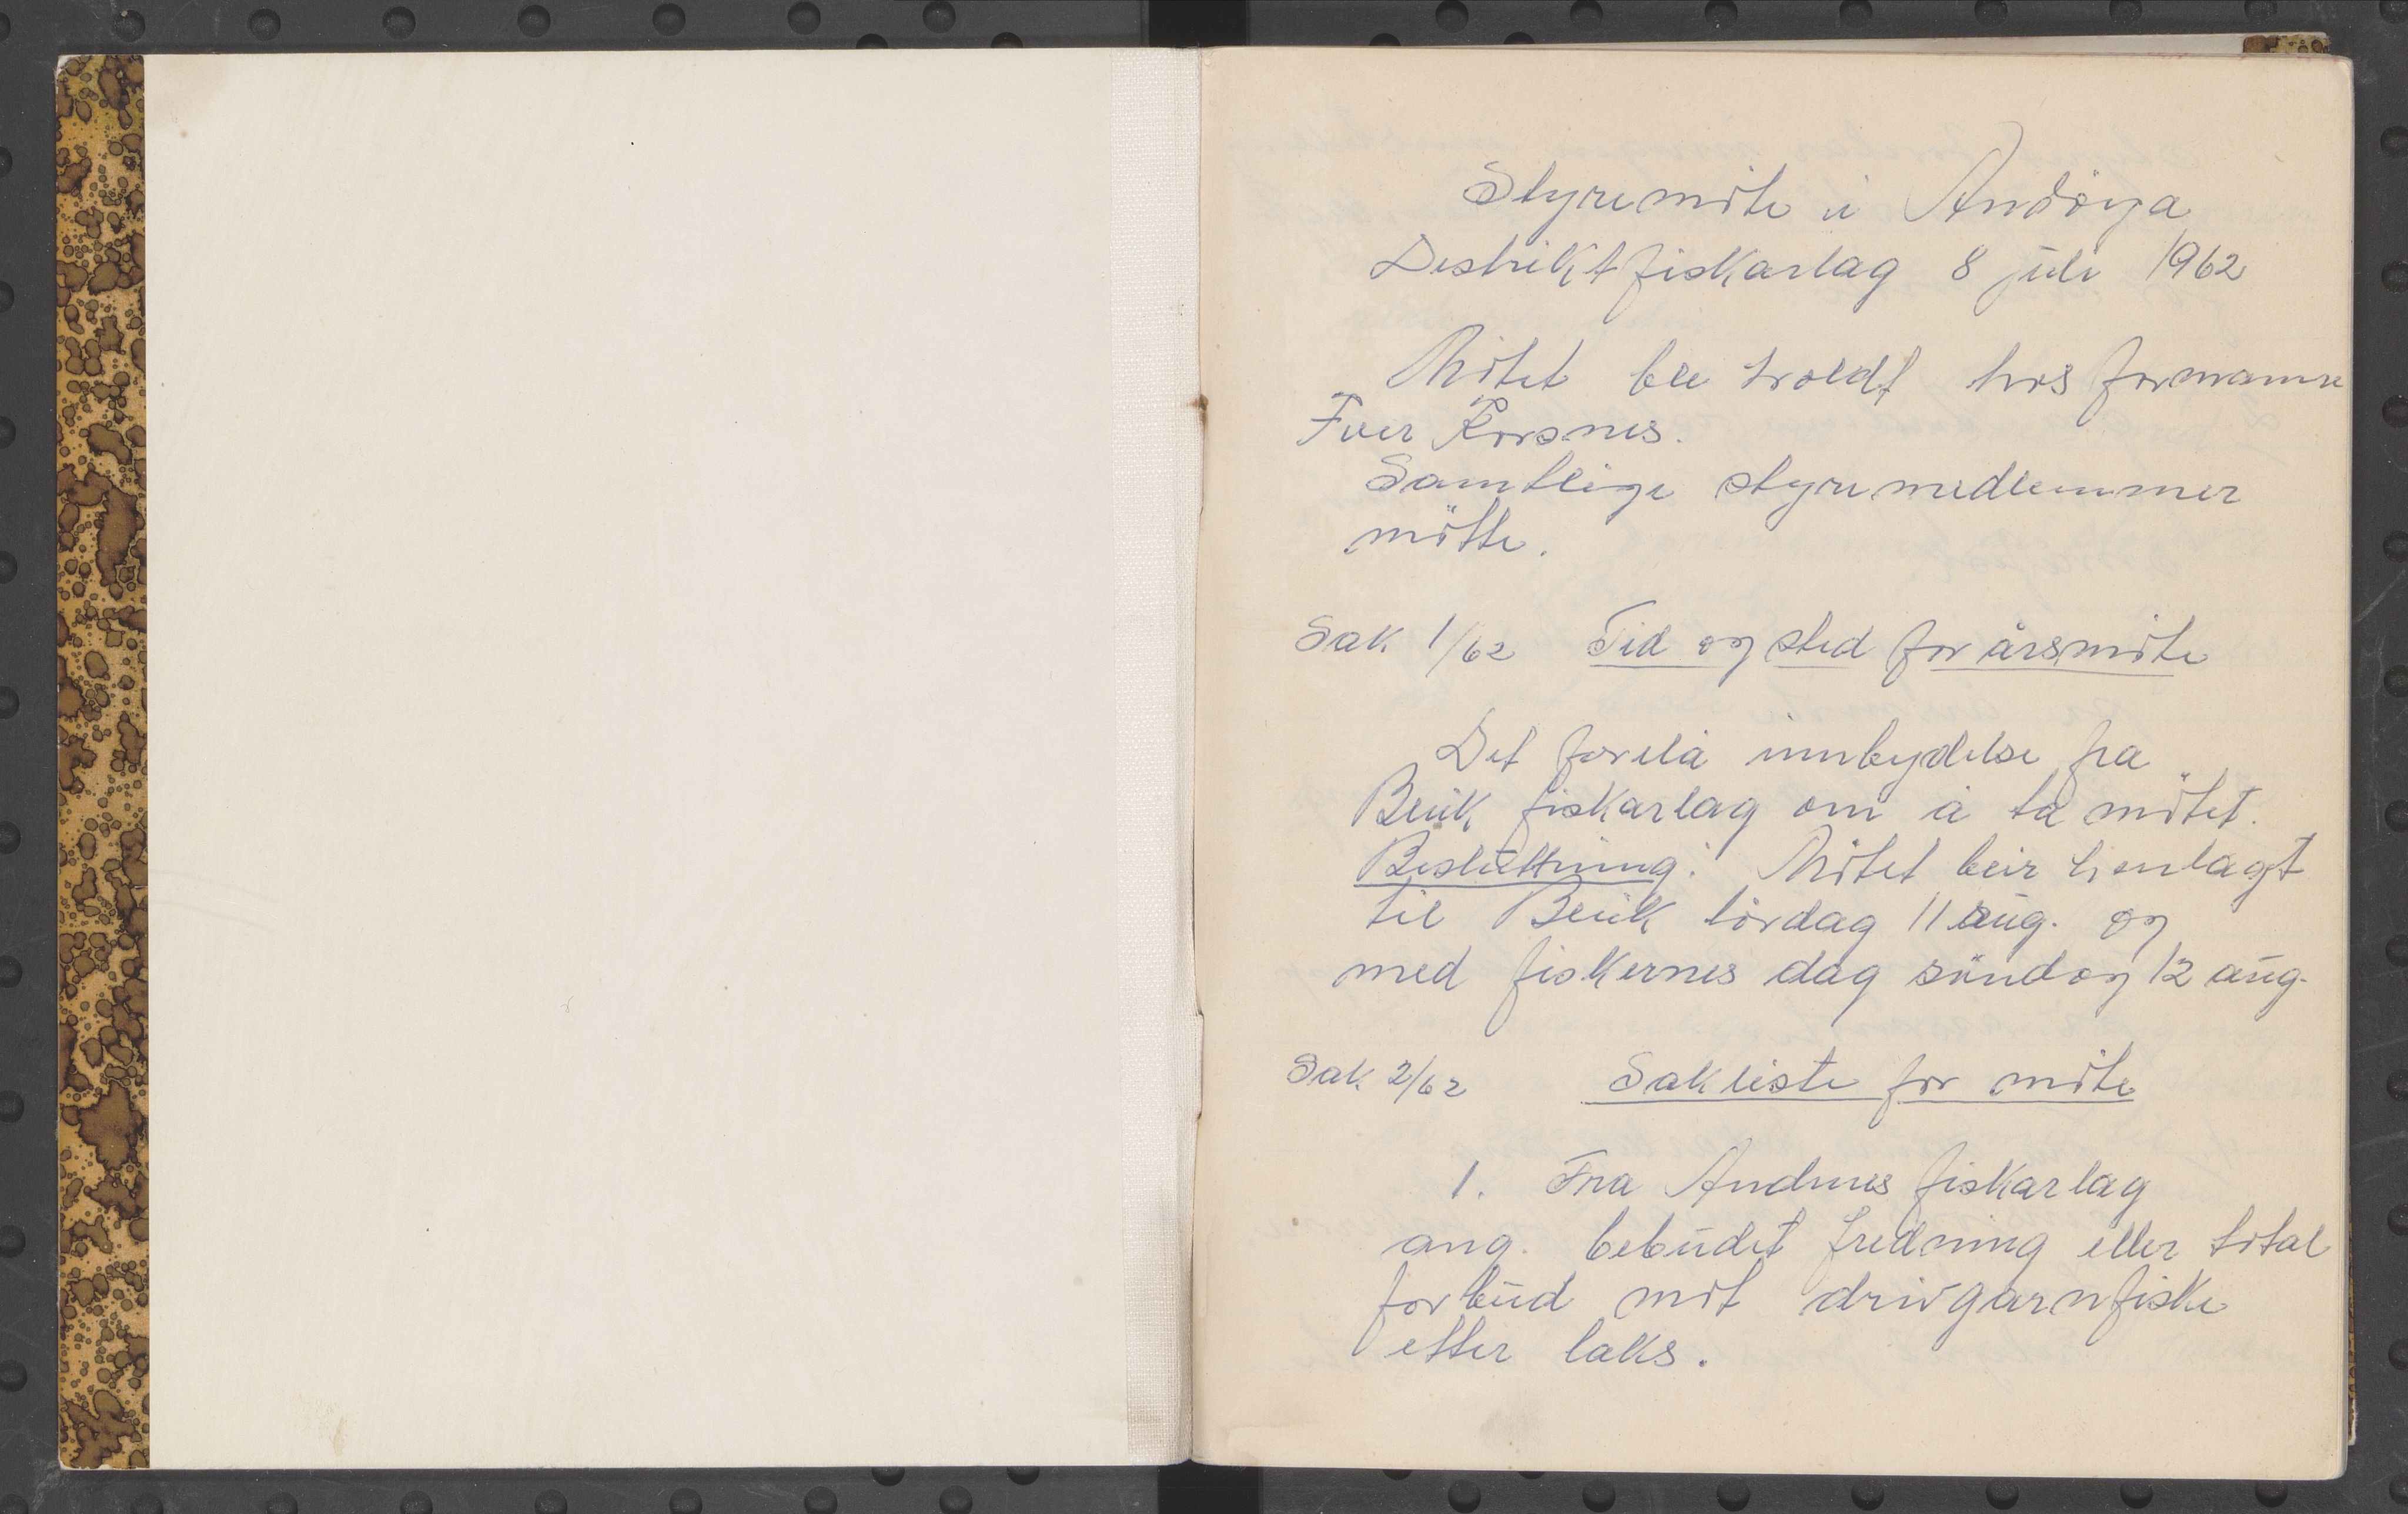 Styremöte i Andöya
Destriktfiskarlag 8 juli 1962
Mötet ble holdt hos formannen
Iver Korsnes.
Samtlige styremedlemmer
mötte.
Sak 1/62 Tid og sted for årsmöte
Det forelå innbydelse fra
Bleik fiskarlag om å ta mötet.
Besluttning: Mötet blir henlagt
til Bleik lördag 11 aug. og
med fiskernes dag söndag 12 aug.
Sak 2/62 Sakliste for möte
1. Fra Andenes fiskarlag
ang. bebudet fredning eller total
forbud mot drivgarnfiske
etter laks.